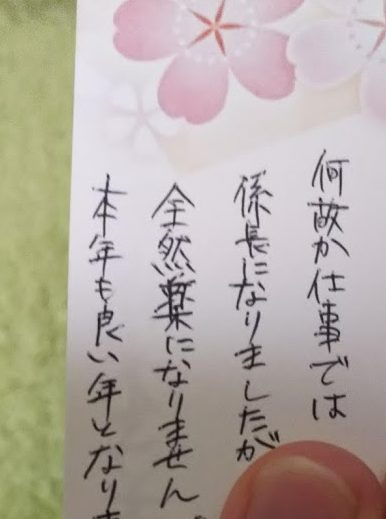 何故か仕事では
係長になりましたが
全然薬になりません
本年も良い年となり